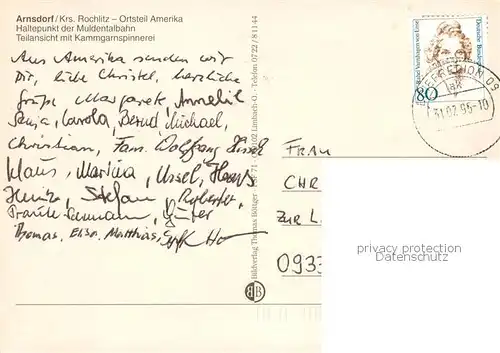 Arnsdorf/Krs. Rochlitz – Ortsteil Amerika
Haltepunkt der Muldentalbahn
Teilansicht mit Kammgarnspinnerei
Aus Amerika senden wir
Dir, liebe Christel, herzliche
Grüße Margarete, Annelie
Carola, Bernd, Michael,
Christian, Fam. Wolfgang
Klaus, Martina, Ursel, Hans
Heinz, Stefan,
Günter
Thomas, Elisa, Matthias,
Bildverlag Thomas Böttger
Limbach-O. · Telefon 0722/81144
BB
Deutsche Bundespost
Rahel Varnhagen von Ense
80
09
-10
FRAU
CHR
ZUR L
0933
privacy protection
Datenschutz